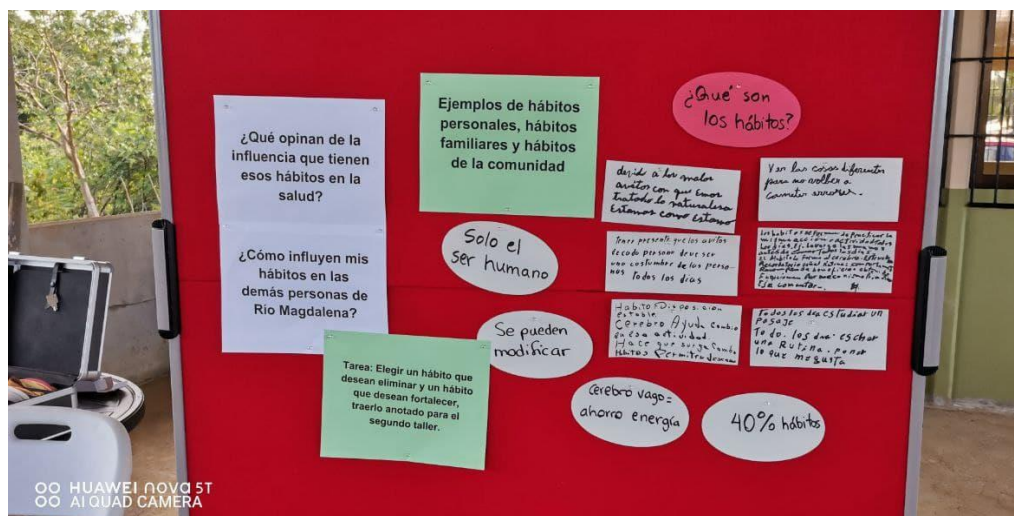 ¿Qué opinan de la
influencia que tienen
esos hábitos en la
salud?
¿Cómo influyen mis
hábitos en las
demás personas de
Río Magdalena?
Ejemplos de hábitos
personales, hábitos
familiares y hábitos
de la comunidad
Tarea: Elegir un hábito que
desean eliminar y un hábito
que desean fortalecer,
traerlo anotado para el
segundo taller.
¿Qué son
los hábitos?
Solo el
ser humano
Se pueden
modificar
Cerebro vago =
ahorro energía
40% hábitos
a los malos
avitos con que Emos
tratado la naturalesa
Estamos como estamo
Ver las cosas diferentes
para no volber a
cometer
Tener presente que los avitos
decada persona deve ser
una costumbre de las perso-
nas todos los dias
Habito Disposicion
estable
Cerebro Ayuda Cambio
actividad.
Hace que surga Cambio
Permite
Todos los dias estudiar un
pasaje
Todo. los dia. escher
una Rutina. poner
lo que me gusta
OO HUAWEI nova 5T
OO AI QUAD CAMERA